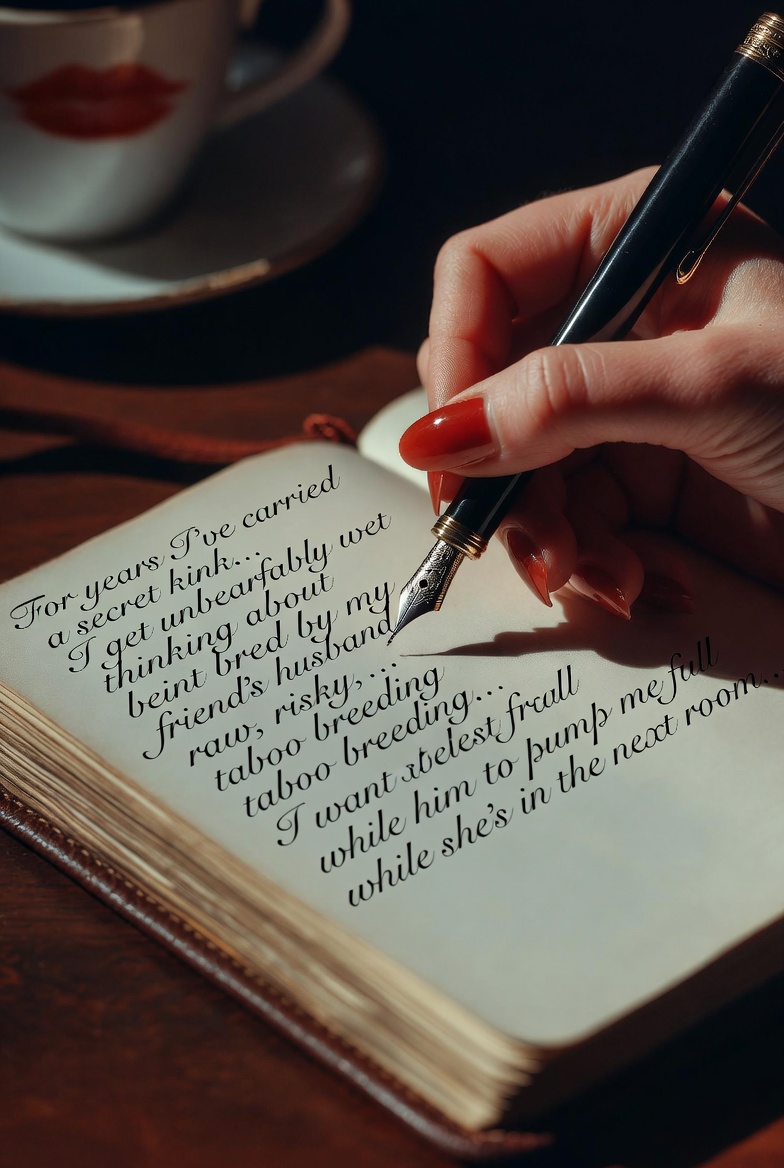 For years I've carried
a secret kink...
I get unbearfably wet
thinking about
beint bred by my
friend's husband
raw, risky,...
taboo breeding
taboo breeding...
I want xtelest frall
while him to pump me full
while she's in the next room...